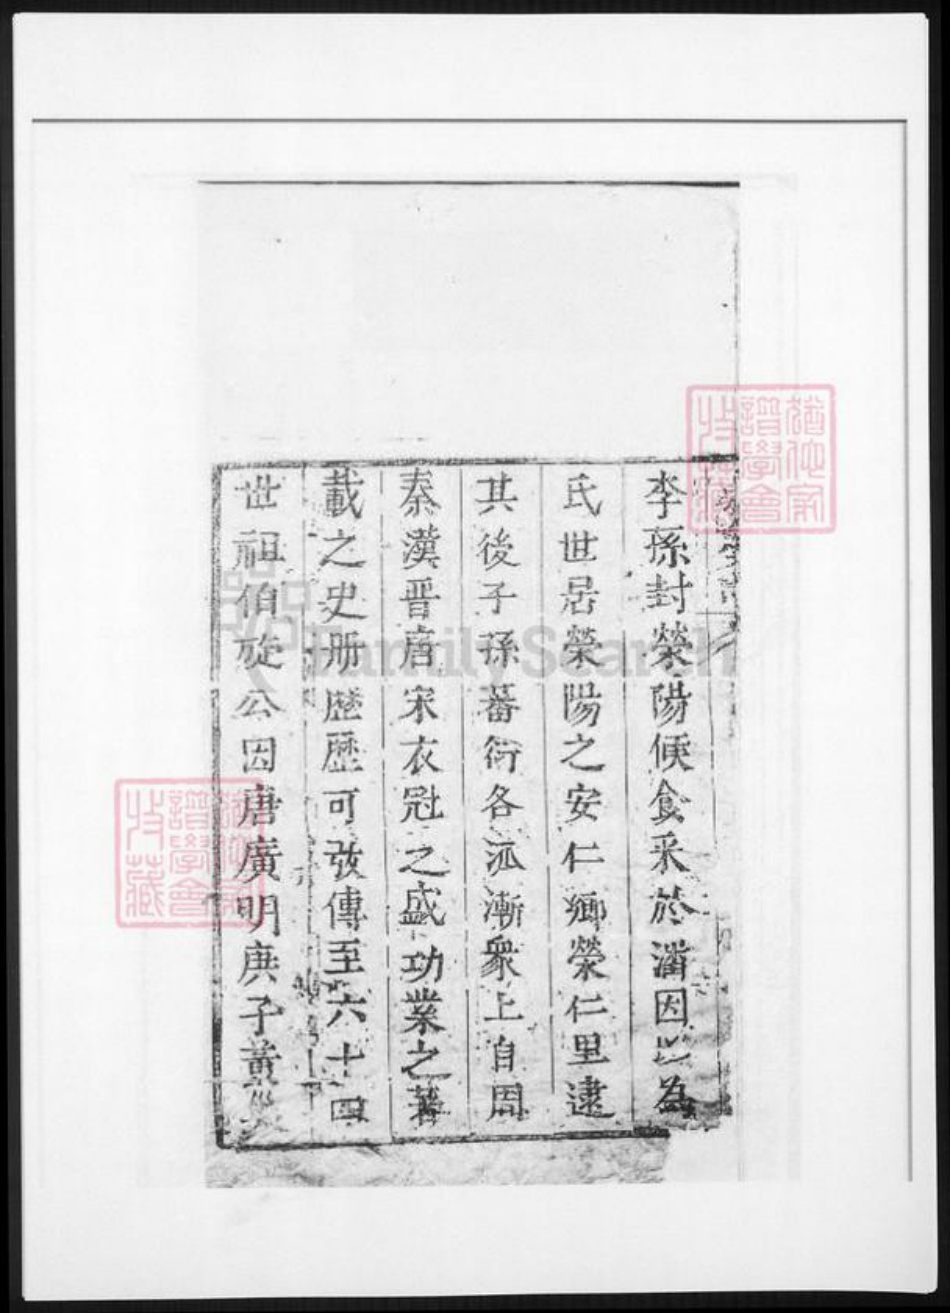 李孫封滎陽候食采於潘因以為
氏世居榮陽之安仁鄉榮仁里逮
其後子孫蕃衍各𣲖漸衆上自周
秦漢晋唐宋衣冠之盛功業之著
載之史册歷歷可攷傳至六十四
世祖伯旋公因唐廣明庚子黃巢
譜學會
收藏
譜學會
收藏
FamilySearch